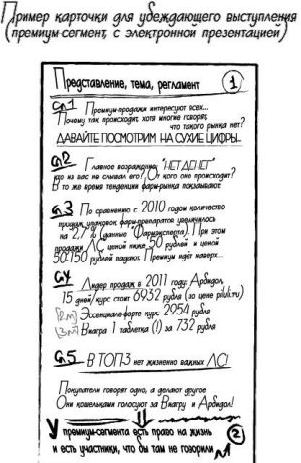 Пример карточки для убеждающего выступления
(премиум-сегмент, с электронной презентацией)
Представление, тема, регламент 1
Сл.1 Премиум-продажи интересуют всех...
Почему так происходит, хотя многие говорят,
что такого рынка нет?
ДАВАЙТЕ ПОСМОТРИМ НА СУХИЕ ЦИФРЫ...
Сл.2 Главное возражение: "НЕТ ДЕНЕГ"
Кто из вас не слышал его? От кого оно происходит?
В то же время тенденции фарм-рынка показывают
Сл.3 По сравнению с 2010 годом количество
продаж упаковок фарм-препаратов увеличилось
на 2,7% (данные "Фармэксперта"). При этом
продажи ЛС ценой ниже 50 рублей и ценой
50-150 рублей падают. Премиум идёт наверх...
Сл.4 Лидер продаж в 2011 году: Арбидол
15 дней/курс стоит 6932 рубля (по цене piluli.ru)
[2м] Эссенциале-форте курс 2054 рубля
[3м] Виагра 1 таблетка (!) за 732 рубля
Сл.5 В ТОП-3 нет жизненно важных ЛС!
Покупатели говорят одно, а делают другое
Они кошельками голосуют за Виагру и Арбидол!
У премиум-сегмента есть право на жизнь
и есть участники, что бы там не говорили 2